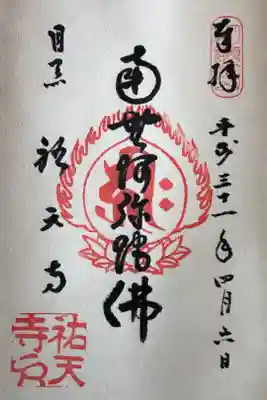 奉拝
平成三十一年四月六日
南無阿弥陀佛
目黒 祐天寺
祐天寺